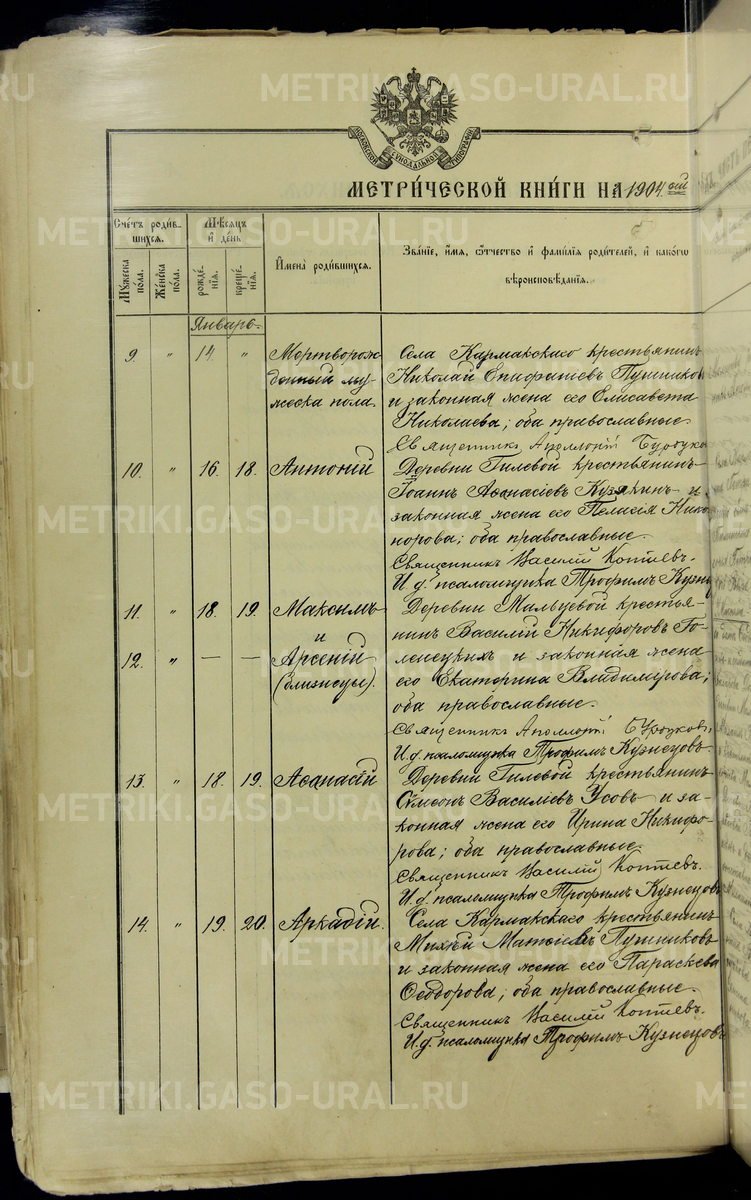 МОСКОВСКОЙ СѴНОДАЛЬНОЙ ТИПОГРАФІИ
МЕТРИ́ЧЕСКОЙ КНИ́ГИ НА 1904 ый
Сче́тъ роди́в-
шихся.
Му́жеска по́ла.
Же́нска по́ла.
Мѣ́сяцъ
и҆ де́нь
рожде́-
нїѧ.
креще́-
нїѧ.
И҆мена̀ роди́вшихся.
Зва́нїе, и҆́мя, ѻ҆́тчество и҆ фами́лїя роди́телей, и҆ како́гѡ
вѣроисповѣ́данїя.
Январь.
9. " 14 " Мертворож- Села Кармакскаго крестьянинъ
денный му- Николай Епифаніевъ Пушников
жеска пола. и законная жена его Елисавета
Николаева; оба православные.
Священникъ Аполлоній
10. " 16 18. Антоній Деревни Гилевой крестьянинъ
Іоаннъ Аѳанасіевъ Кузякинъ и
законная жена его Пелагія Нико
норова; оба православные.
Священникъ Василій Коптевъ.
И. д. псаломщика Трофимъ Кузнец
11. " 18. 19. Максимъ Деревни Мальцевой крестья-
и нинъ Василій Никифоровъ Го-
12. " — — Арсеній и законная жена
(близнецы). его Екатерина Владимірова;
оба православные.
Священникъ Аполлоній
И. д. псаломщика Трофимъ Кузнецовъ.
13. " 18. 19. Аѳанасій Деревни Гилевой крестьянинъ
Сѵмеонъ Василіевъ Усовъ и за-
конная жена его Ирина Никифо-
рова; оба православные.
Священникъ Василій Коптевъ.
И. д. псаломщика Трофимъ Кузнецовъ
14. " 19. 20. Аркадій. Села Кармакскаго крестьянинъ
Михѣй Матѳіевъ Пушниковъ
и законная жена его Параскева
Ѳеодорова; оба православные.
Священникъ Василій Коптевъ.
И. д. псаломщика Трофимъ Кузнецовъ
METRIKI.GASO-URAL.RU